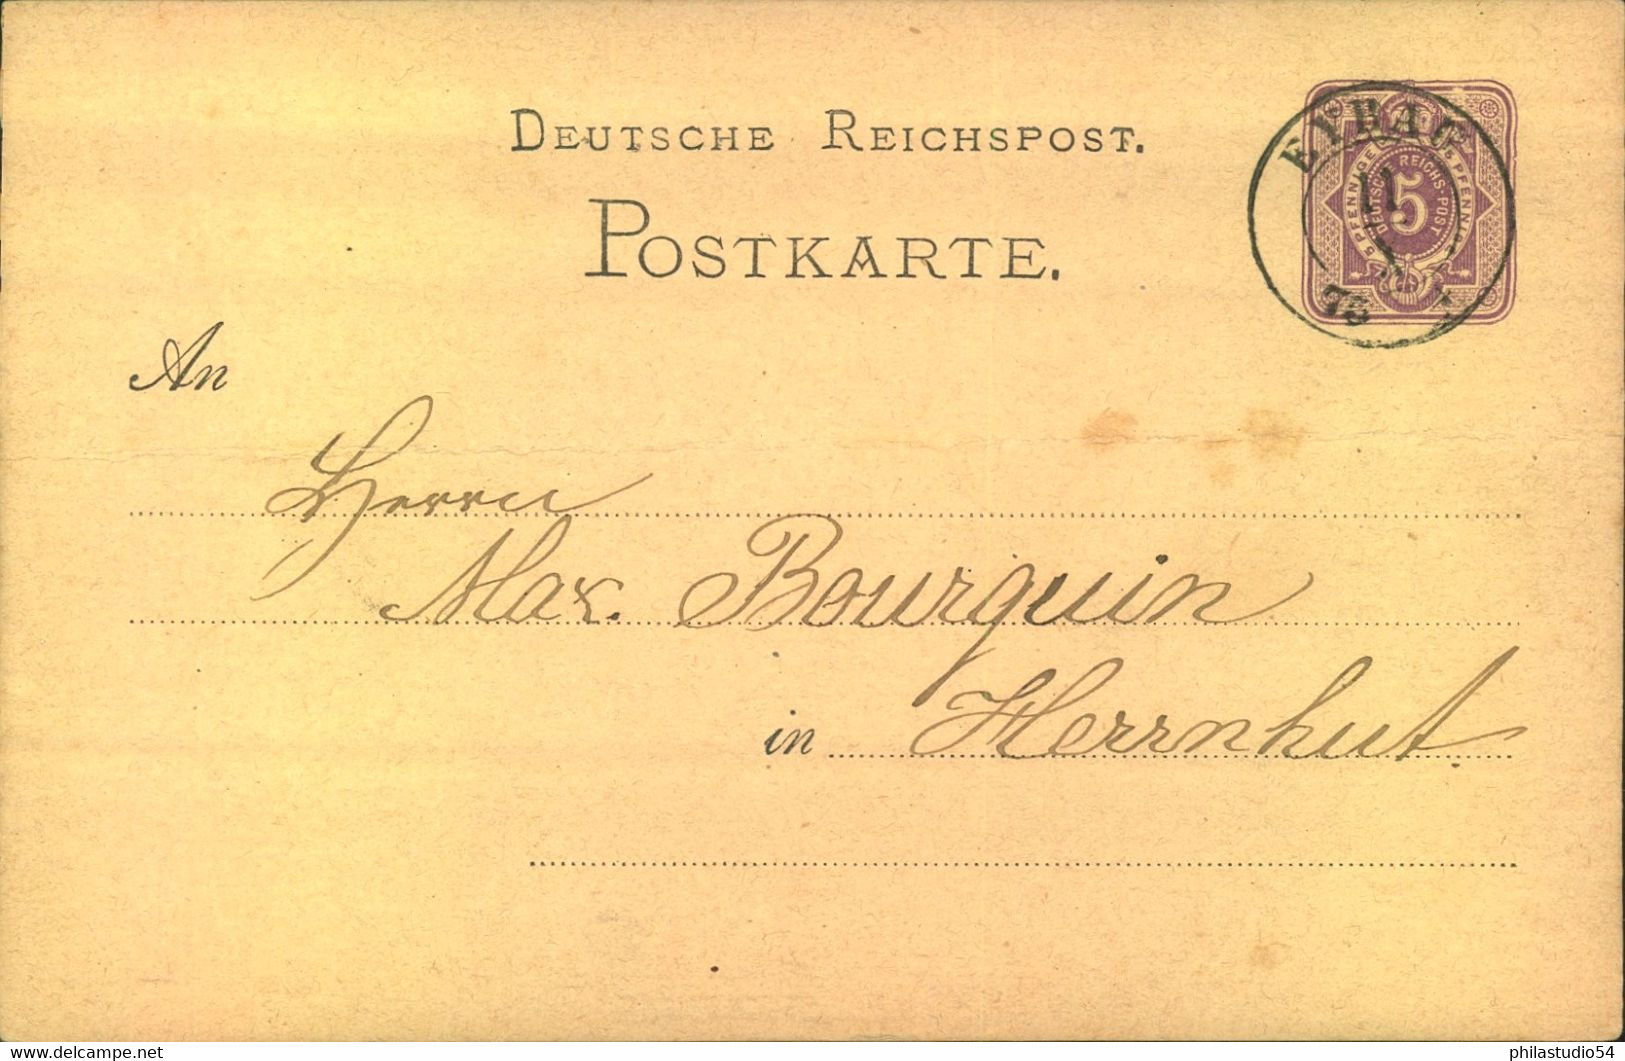 DEUTSCHE REICHSPOST.
POSTKARTE.
5 PFENNIGE 5 PFENNIGE
DEUTSCHE REICHS-POST
5
11
An
Herrn
Max. Bourquin
in Herrnhut
www.delcampe.net
philastudio54